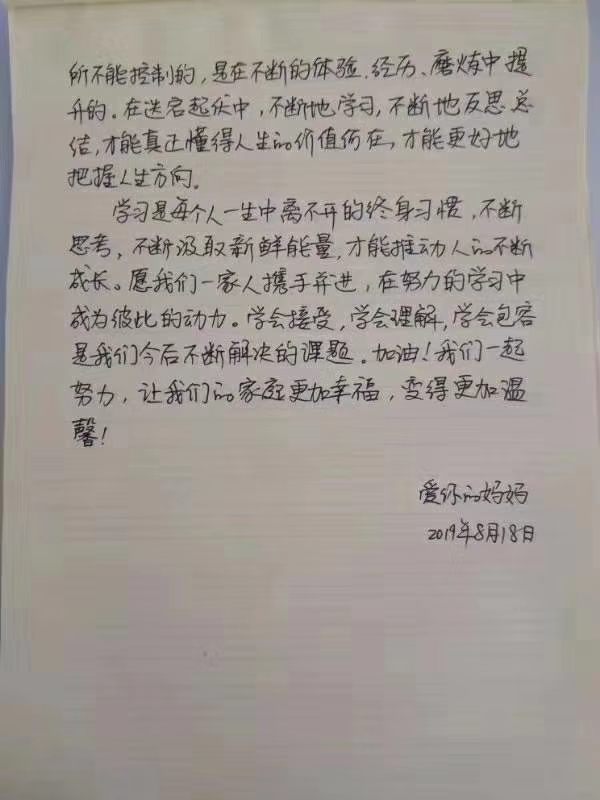 所不能控制的，是在不断的体验、经历、磨炼中提
升的。在迭宕起伏中，不断地学习，不断地反思总
结，才能真正懂得人生的价值所在，才能更好地
把握人生方向。
学习是每个人一生中离不开的终身习惯，不断
思考，不断汲取新鲜能量，才能推动人的不断
成长。愿我们一家人携手并进，在努力的学习中
成为彼此的动力。学会接受，学会理解，学会包容
是我们今后不断解决的课题。加油！我们一起
努力，让我们的家庭更加幸福，变得更加温
馨！
爱你的妈妈
2019年8月18日